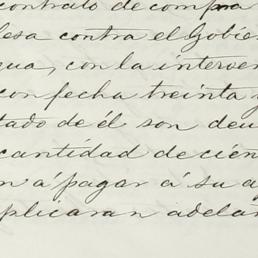 contrato de compra
lesa contra el Gobier
gua, con la interven
con fecha treinta y
tado de él son deu
cantidad de cien
n á pagar á su a
plicaran adelan